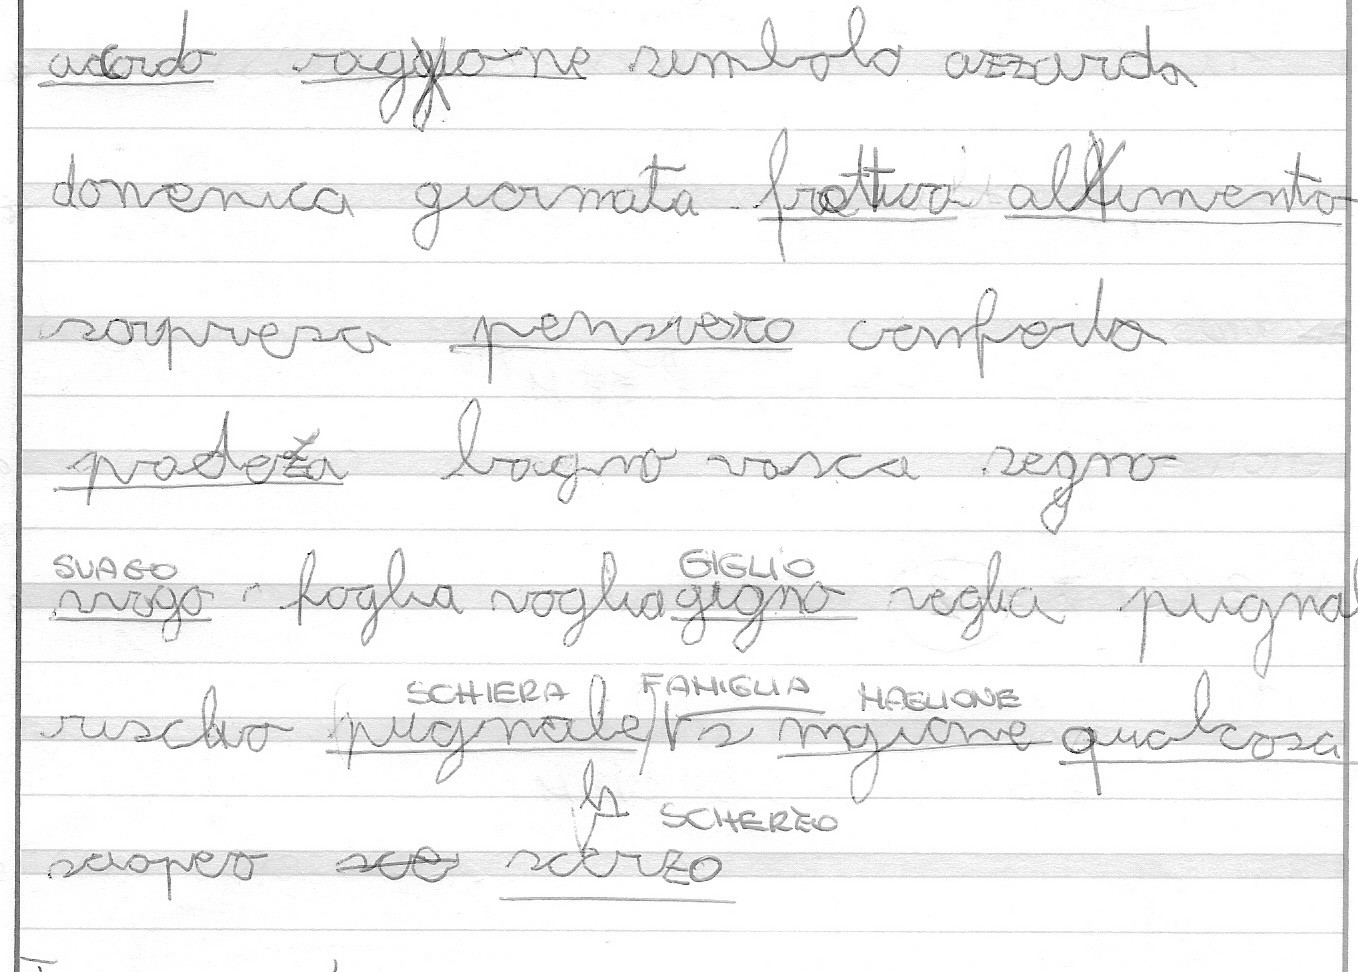 acordo raggione simbolo azzarda
domenica giornata frettura allimento
sorpresa pensiero conforta
padeza bagno vasca segno
SVAGO GIGLIO
svogo foglia voglia gigno veglia pugnal
SCHIERA FAMIGLIA MAGLIONE
rischio pugnale mgione qualcosa
SCHERZO
sciopero sce scerzo